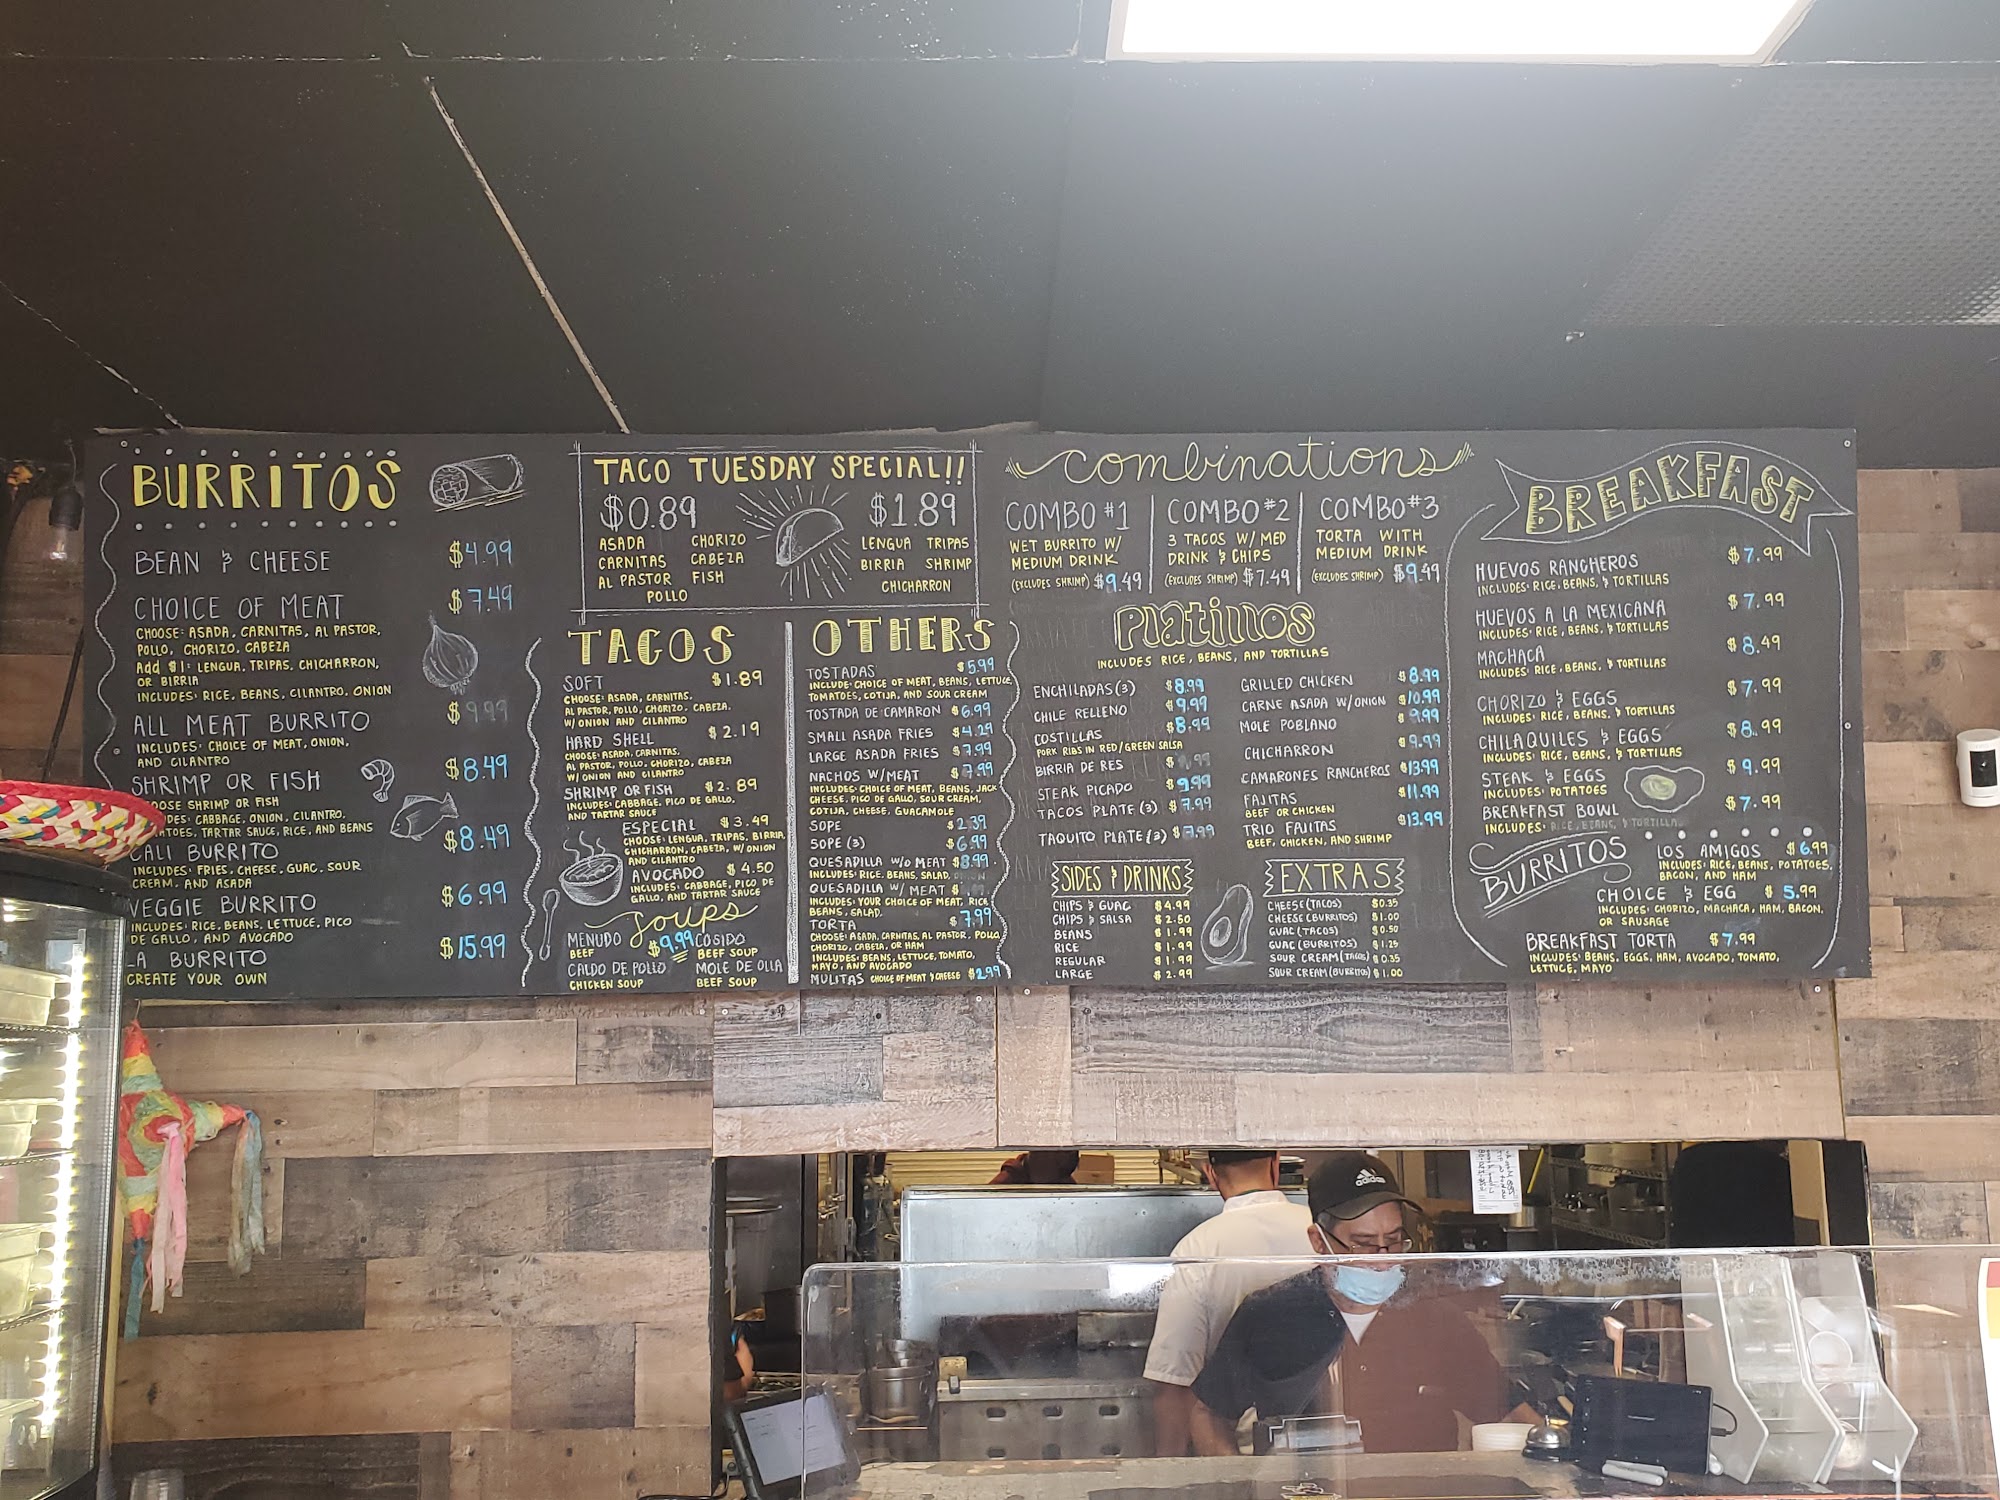 BURRITOS
BEAN & CHEESE $4.99
CHOICE OF MEAT $7.49
CHOOSE: ASADA, CARNITAS, AL PASTOR,
POLLO, CHORIZO, CABEZA
Add $1: LENGUA, TRIPAS, CHICHARRON,
OR BIRRIA
INCLUDES: RICE, BEANS, CILANTRO, ONION
ALL MEAT BURRITO $9.99
INCLUDES: CHOICE OF MEAT, ONION,
AND CILANTRO
SHRIMP OR FISH $8.49
OOSE SHRIMP OR FISH
DES: CABBAGE, ONION, CILANTRO,
ATOES, TARTAR SAUCE, RICE, AND BEANS
CALI BURRITO $8.49
INCLUDES: FRIES, CHEESE, GUAC, SOUR
CREAM, AND ASADA
VEGGIE BURRITO $6.99
INCLUDES: RICE, BEANS, LETTUCE, PICO
DE GALLO, AND AVOCADO
LA BURRITO $15.99
CREATE YOUR OWN
TACO TUESDAY SPECIAL!!
$0.89
ASADA CHORIZO
CARNITAS CABEZA
AL PASTOR FISH
POLLO
$1.89
LENGUA TRIPAS
BIRRIA SHRIMP
CHICHARRON
TACOS
SOFT $1.89
CHOOSE: ASADA, CARNITAS,
AL PASTOR, POLLO, CHORIZO, CABEZA,
W/ ONION AND CILANTRO
HARD SHELL $2.19
CHOOSE: ASADA, CARNITAS,
AL PASTOR, POLLO, CHORIZO, CABEZA
W/ ONION AND CILANTRO
SHRIMP OR FISH $2.89
INCLUDES: CABBAGE, PICO DE GALLO,
AND TARTAR SAUCE
ESPECIAL $3.49
CHOOSE: LENGUA, TRIPAS, BIRRIA,
CHICHARRON, CABEZA, W/ ONION
AND CILANTRO
AVOCADO $4.50
INCLUDES: CABBAGE, PICO DE
GALLO, AND TARTAR SAUCE
Soups
MENUDO $9.99 COSIDO
BEEF BEEF SOUP
CALDO DE POLLO MOLE DE OLLA
CHICKEN SOUP BEEF SOUP
OTHERS
TOSTADAS $5.99
INCLUDE: CHOICE OF MEAT, BEANS, LETTUCE,
TOMATOES, COTIJA, AND SOUR CREAM
TOSTADA DE CAMARON $6.99
SMALL ASADA FRIES $4.29
LARGE ASADA FRIES $7.99
NACHOS W/MEAT $7.99
INCLUDES: CHOICE OF MEAT, BEANS, JACK
CHEESE, PICO DE GALLO, SOUR CREAM,
COTIJA, CHEESE, GUACAMOLE
SOPE $2.39
SOPE (3) $6.99
QUESADILLA W/O MEAT $8.99
INCLUDES: RICE, BEANS, SALAD,
QUESADILLA W/ MEAT $
INCLUDES: YOUR CHOICE OF MEAT, RICE
BEANS, SALAD,
TORTA $7.99
CHOOSE: ASADA, CARNITAS, AL PASTOR, POLLO
CHORIZO, CABEZA, OR HAM
INCLUDES: BEANS, LETTUCE, TOMATO,
MAYO, AND AVOCADO
MULITAS CHOICE OF MEAT & CHEESE $2.99
Combinations
COMBO #1
WET BURRITO W/
MEDIUM DRINK
(EXCLUDES SHRIMP) $9.49
COMBO #2
3 TACOS W/ MED
DRINK & CHIPS
(EXCLUDES SHRIMP) $7.49
COMBO #3
TORTA WITH
MEDIUM DRINK
(EXCLUDES SHRIMP) $9.49
Platillos
INCLUDES RICE, BEANS, AND TORTILLAS
ENCHILADAS (3) $8.99
CHILE RELLENO $9.99
COSTILLAS $8.99
PORK RIBS IN RED/GREEN SALSA
BIRRIA DE RES $
STEAK PICADO $9.99
TACOS PLATE (3) $7.99
TAQUITO PLATE (3) $7.99
GRILLED CHICKEN $8.99
CARNE ASADA W/ONION $10.99
MOLE POBLANO $9.99
CHICHARRON $9.99
CAMARONES RANCHEROS $13.99
FAJITAS $11.99
BEEF OR CHICKEN
TRIO FAJITAS $13.99
BEEF, CHICKEN, AND SHRIMP
SIDES & DRINKS
CHIPS & GUAC $4.99
CHIPS & SALSA $2.50
BEANS $1.99
RICE $1.99
REGULAR $1.99
LARGE $2.99
EXTRAS
CHEESE (TACOS) $0.35
CHEESE (BURRITOS) $1.00
GUAC (TACOS) $0.50
GUAC (BURRITOS) $1.25
SOUR CREAM (TACOS) $0.35
SOUR CREAM (BURRITOS) $1.00
BREAKFAST
HUEVOS RANCHEROS $7.99
INCLUDES: RICE, BEANS, & TORTILLAS
HUEVOS A LA MEXICANA $7.99
INCLUDES: RICE, BEANS, & TORTILLAS
MACHACA $8.49
INCLUDES: RICE, BEANS, & TORTILLAS
CHORIZO & EGGS $7.99
INCLUDES: RICE, BEANS, & TORTILLAS
CHILAQUILES & EGGS $8.99
INCLUDES: RICE, BEANS, & TORTILLAS
STEAK & EGGS $9.99
INCLUDES: POTATOES
BREAKFAST BOWL $7.99
INCLUDES: RICE, BEANS, & TORTILLA
BURRITOS
LOS AMIGOS $6.99
INCLUDES: RICE, BEANS, POTATOES,
BACON, AND HAM
CHOICE & EGG $5.99
INCLUDES: CHORIZO, MACHACA, HAM, BACON,
OR SAUSAGE
BREAKFAST TORTA $7.99
INCLUDES: BEANS, EGGS, HAM, AVOCADO, TOMATO,
LETTUCE, MAYO
adidas